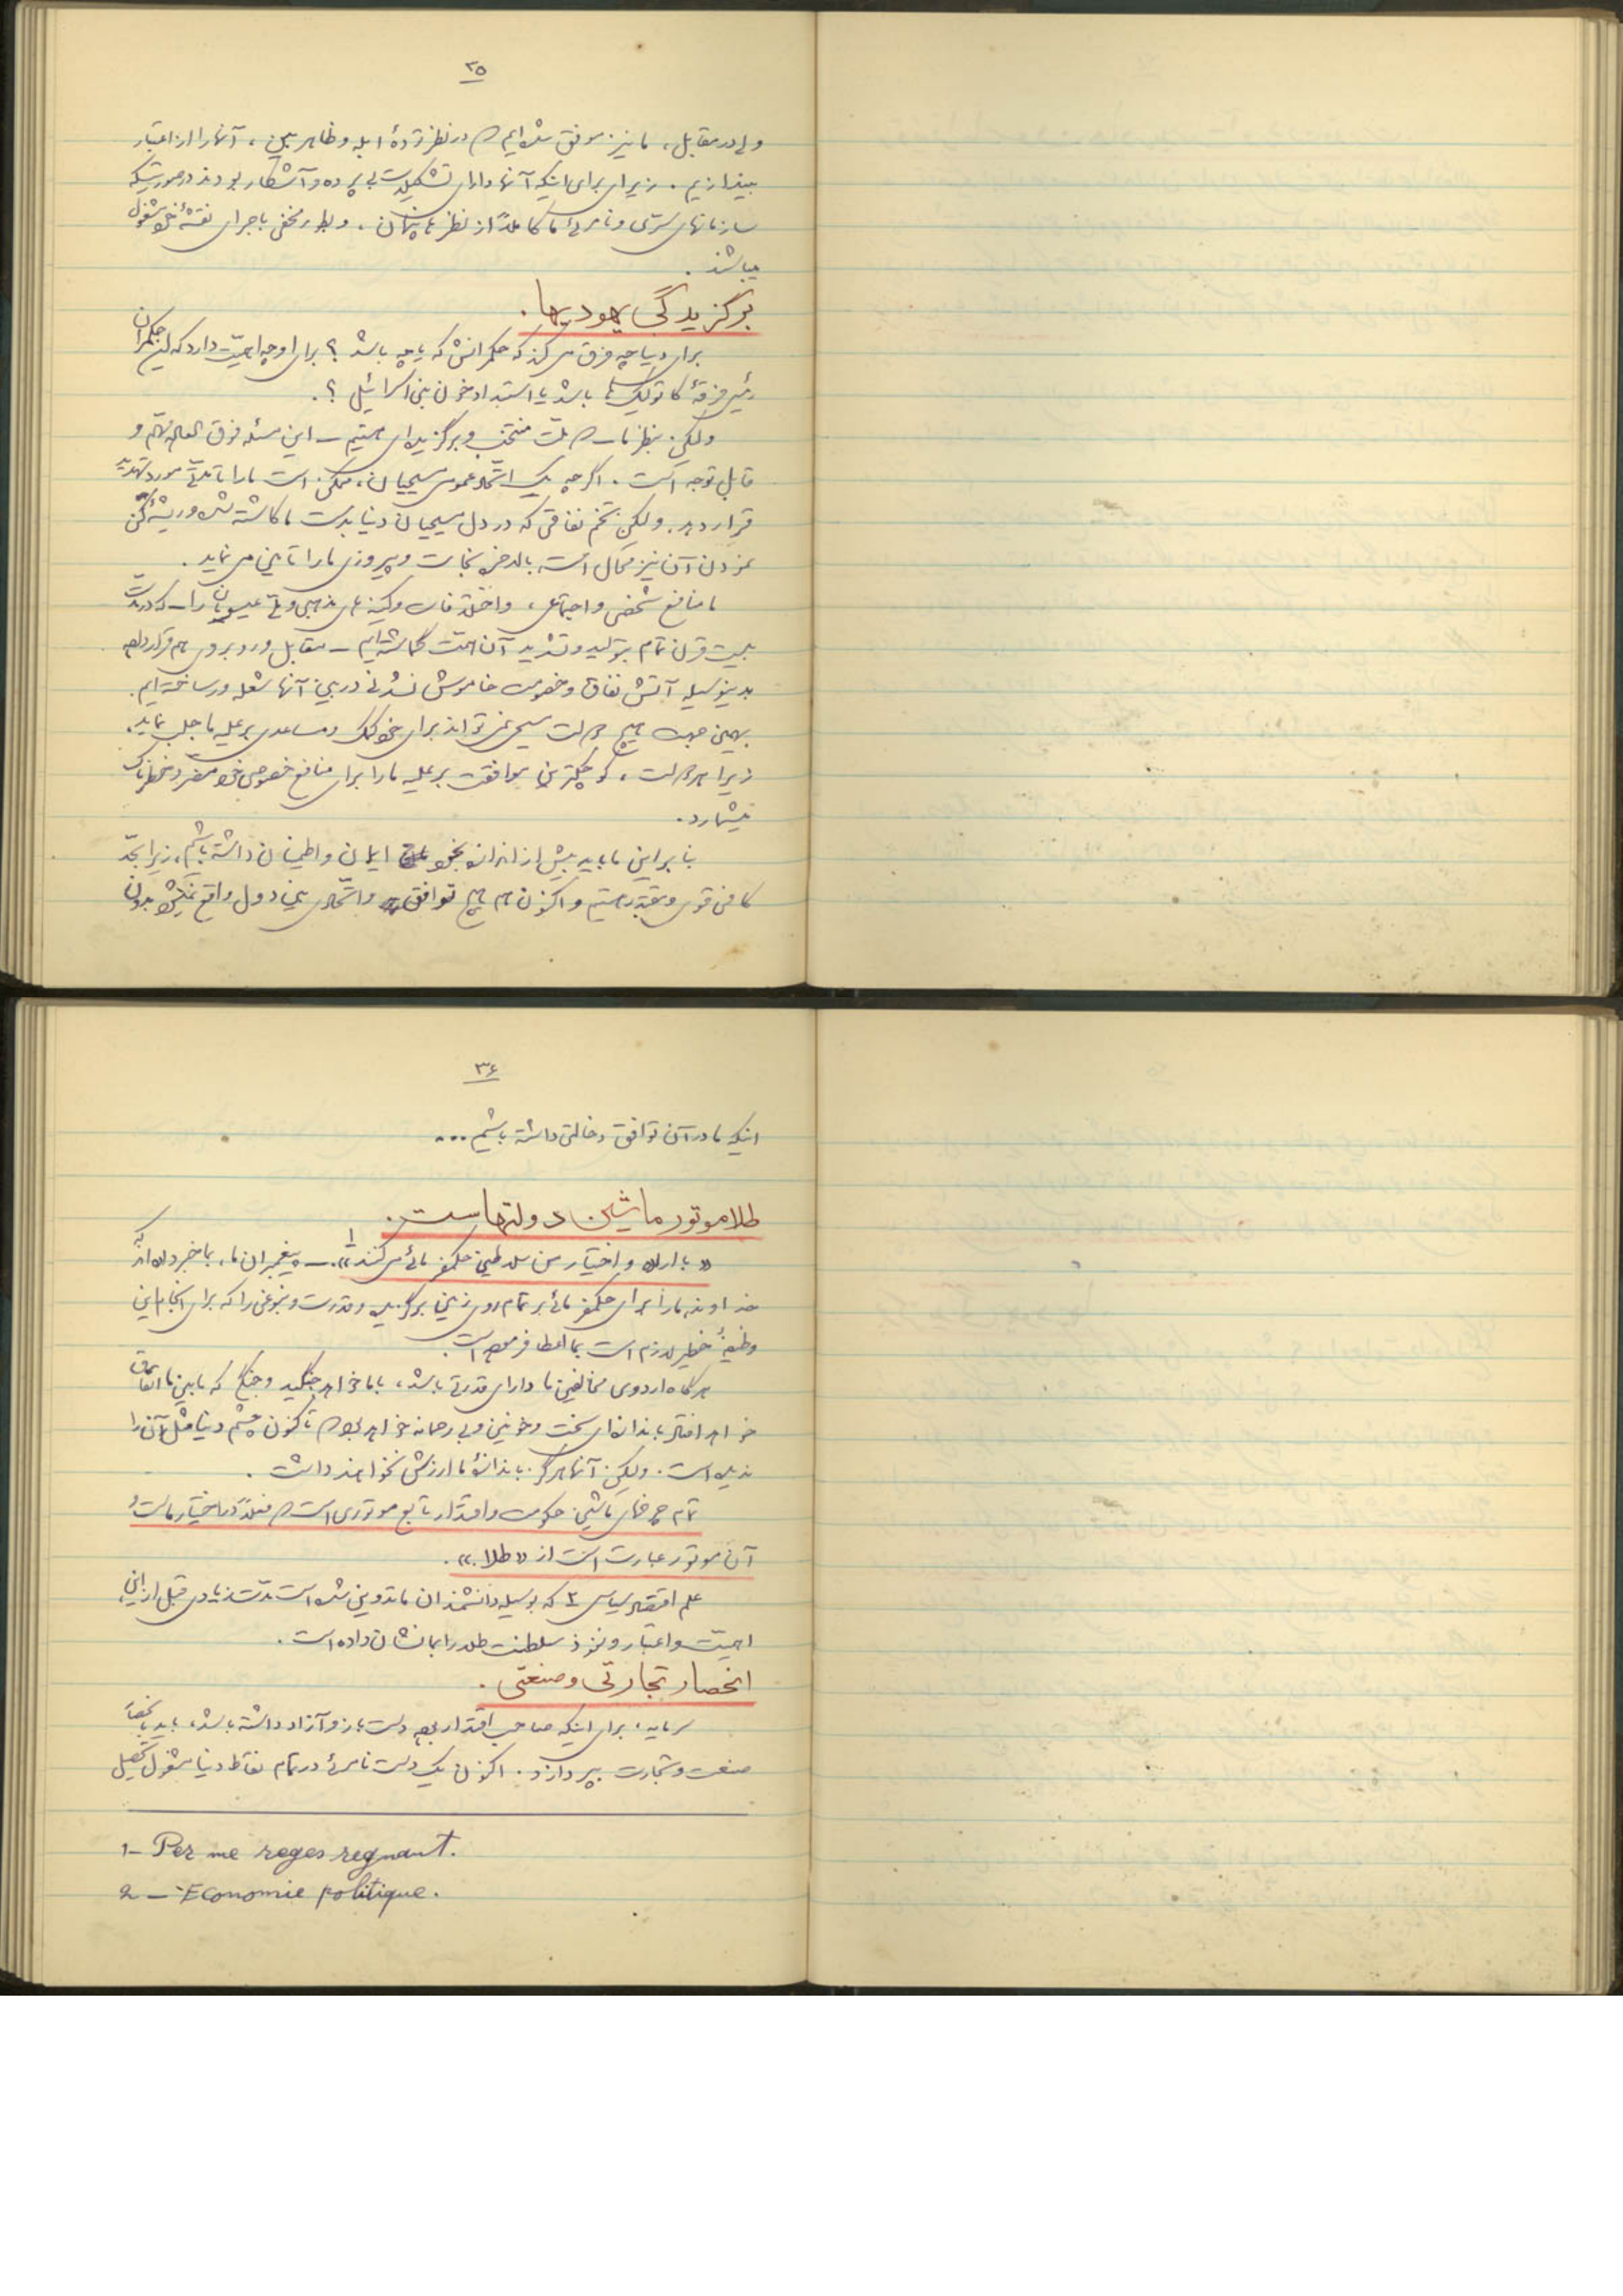 ۳۵
ولی در مقابل، ما نیز موفق شده‌ایم که در نظر تودهٔ ابله و ظاهر بین، آنها را از اعتبار
بیندازیم. زیرا برای اینکه آنها دارای تشکیلات بی پرده و آشکار بودند در صورتیکه
سازمانهای سرّی و نامرئی ما کاملاً از نظرها پنهان، و بطور مخفی باجرای نقشهٔ خود مشغول
میباشند.
برگزیدگی یهودیها.
برای دنیا چه فرق می‌کند که حکمرانش که یا چه باشد؟ برای او چه اهمیّت دارد که این حکمران
رئیس فرقهٔ کاتولیک‌ها باشد یا استبداد خون بنی اسرائیل؟.
ولکن بنظر ما – که ملّت منتخب و برگزیده‌ای هستیم – این مسئله فوق العاده مهمّ و
قابل توجه است. اگرچه یک اتّحاد عمومی مسیحیان، ممکن است ما را تا مدّتی مورد تهدید
قرار دهد. ولکن تخم نفاقی که در دل مسیحیان دنیا بدست ما کاشته شده و ریشه‌کن
نمودن آن نیز محال است، بالاخره نجات و پیروزی ما را تأمین می نماید.
ما منافع شخصی و اجتماعی، و اختلافات و کینه های مذهبی و ملّی عیسویان را – که در مدّت
بیست قرن تمام بتولید و تشدید آن همّت گماشته‌ایم – مقابل و روبروی هم قرار داده
بدینوسیله آتش نفاق و خصومت خاموش نشدنی در بین آنها شعله‌ور ساخته ایم.
بهمین جهت هیچ دولت مسیحی نمی تواند برای خود کمک و مساعدی بر علیه ما جلب نماید.
زیرا هر دولت، کوچکترین موافقت بر علیه ما را برای منافع خصوصی خود مضر و خطرناک
میشمارد.
بنابراین ما باید بیش از اندازه بخود ایمان و اطمینان داشته باشیم، زیرا بحدّ
کافی قوی و مقتدر هستیم و اکنون هم هیچ توافق و اتّحادی بین دول واقع نمیشود بدون
۳۶
اینکه ما در آن توافق دخالتی داشته باشیم...
طلا موتور ماشین دولتهاست.
«با اراده و اختیار من سلاطین حکمفرمائی می کنند»۱. – پیغمبران ما، بما خبر داده‌اند که
خداوند ما را برای حکمفرمائی بر تمام روی زمین برگزیده و قدرت و نبوغی را که برای انجام این
وظیفهٔ خطیر لازم است بما اعطا فرموده است.
هرگاه اردوی مخالفین ما دارای قدرتی باشد، با ما خواهد جنگید و جنگی که مابین ما اتفاق
خواهد افتاد باندازه‌ای سخت و خونین و بی رحمانه خواهد بود که تاکنون چشم دنیا مثل آن را
ندیده است. ولکن آنها هرگز باندازهٔ ما ارزش نخواهند داشت.
تمام چرخهای ماشین حکومت و اقتدار تابع موتوری است که فعلاً در اختیار ماست و
آن موتور عبارت است از «طلا».
علم اقتصاد سیاسی ۲ که بوسیله دانشمندان ما تدوین شده است مدّت زیادی قبل از این،
اهمیّت و اعتبار و نفوذ سلطنت طلا را بما نشان داده است.
انحصار تجارتی و صنعتی.
سرمایه، برای اینکه صاحب اقتدار بوده دست باز و آزاد داشته باشد، باید بانحصار
صنعت و تجارت بپردازد. اکنون یک دست نامرئی در تمام نقاط دنیا مشغول تحصیل
1- Per me reges regnant.
2 - Economie politique.